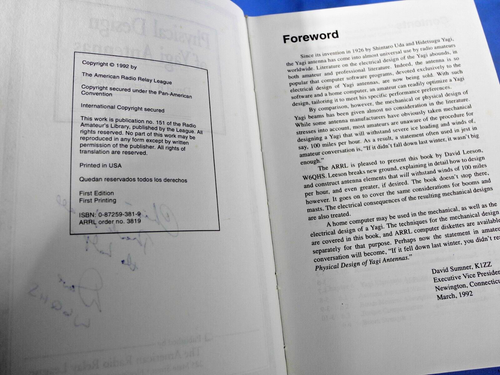 Copyright © 1992 by
The American Radio Relay League
Copyright secured under the Pan-American
Convention
International Copyright secured
This work is publication no. 151 of the Radio
Amateur's Library, published by the League. All
rights reserved. No part of this work may be
reproduced in any form except by written
permission of the publisher. All rights of
translation are reserved.
Printed in USA
Quedan reservados todos los derechos
First Edition
First Printing
ISBN: 0-87259-381-9
ARRL order no. 3819
Foreword
Since its invention in 1926 by Shintaro Uda and Hidetsugu Yagi,
the Yagi antenna has come into almost universal use by radio amateurs
worldwide. Literature on the electrical design of the Yagi abounds, in
both amateur and professional literature. Indeed, the antenna is so
popular that computer software programs, devoted exclusively to the
electrical design of Yagi antennas, are now being sold. With such
software and a home computer, an amateur can readily optimize a Yagi
design, tailoring it to meet his specific performance preferences.
By comparison, however, the mechanical or physical design of
Yagi beams has been given almost no consideration in the literature.
While some antenna manufacturers have obviously taken mechanical
stresses into account, most amateurs are unaware of the procedure for
designing a Yagi that will withstand severe ice loading and winds of,
say, 100 miles per hour. As a result, a statement often used in jest in
amateur conversation is, "If it didn't fall down last winter, it wasn't big
enough."
The ARRL is pleased to present this book by David Leeson,
W6QHS. Leeson breaks new ground, explaining in detail how to design
and construct antenna elements that will withstand winds of 100 miles
per hour, and even greater, if desired. The book doesn't stop there,
however. It goes on to cover the same considerations for booms and
masts. The electrical consequences of the resulting mechanical designs
are also treated.
A home computer may be used in the mechanical, as well as the
electrical design of a Yagi. The techniques for the mechanical design
are covered in this book, and ARRL computer diskettes are available
separately for that purpose. Perhaps now the statement in amateur
conversation will become, "If it fell down last winter, you didn't re
Physical Design of Yagi Antennas."
David Sumner, K1ZZ
Executive Vice President
Newington, Connecticut
March, 1992